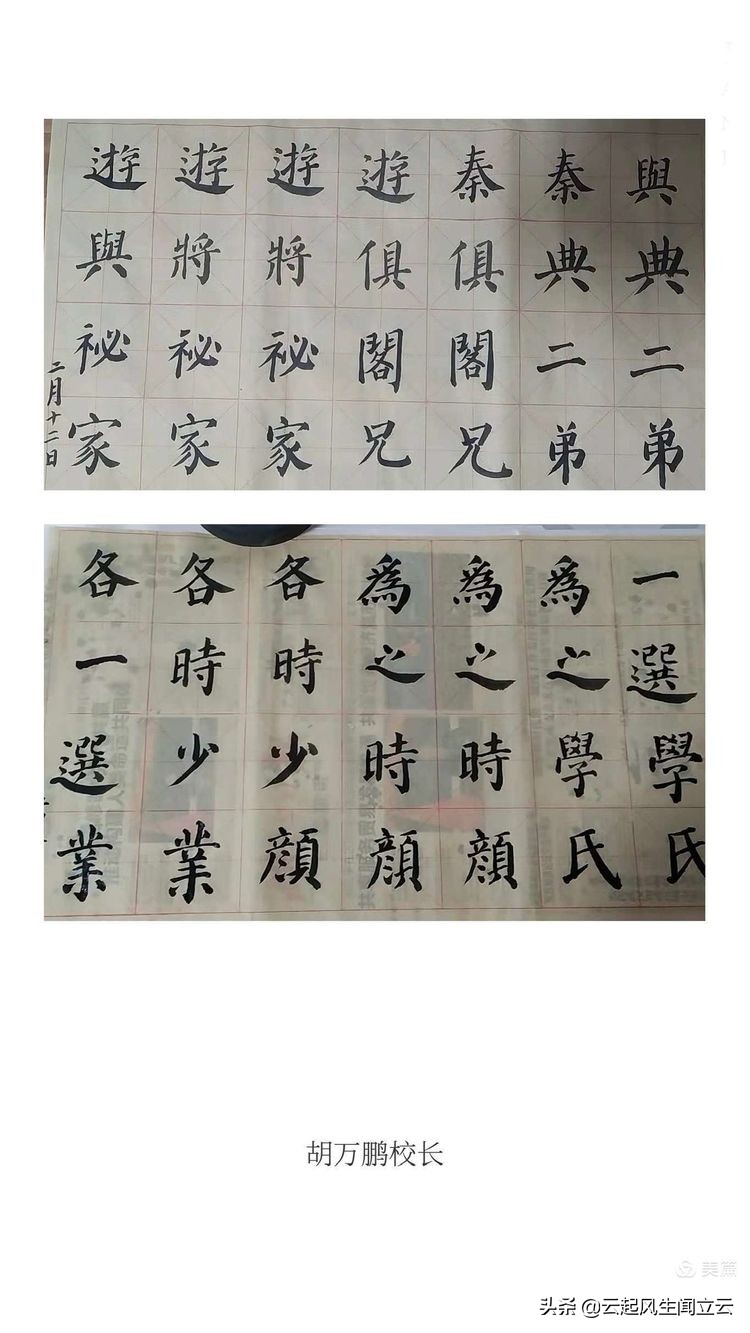 與典二弟
秦典二弟
秦俱閣兄
遊俱閣兄
遊將祕家
遊將祕家
遊與祕家
二月十二日
一選學氏
爲之學氏
爲之時顔
爲之時顔
各時少顔
各時少業
各一選業
胡万鹏校长
美篇
头条 @云起风生闻立云